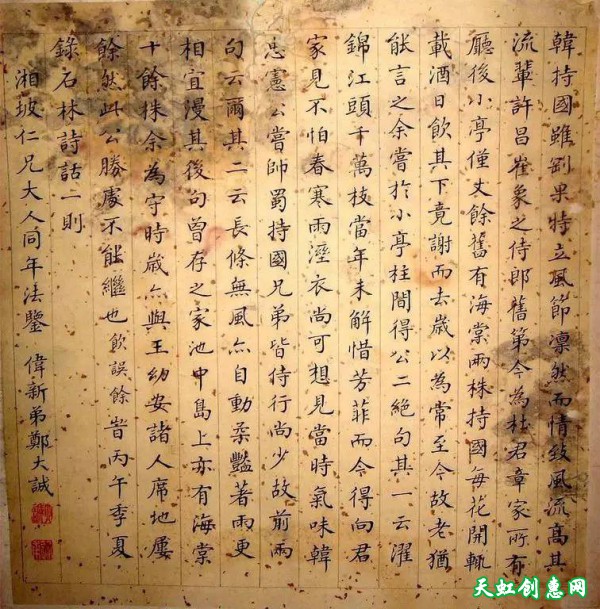 韓持國雖剛果特立風節凜然而情致風流高其
流輩許昌崔象之侍郎舊第今為杜君章家所有
廳後小亭僅丈餘舊有海棠兩株持國每花開輒
載酒日飲其下竟謝而去歲以為常至今故老猶
能言之余嘗於小亭柱間得公二絕句其一云濯
錦江頭千萬枝當年未解惜芳菲而今得向君
家見不怕春寒雨溼衣尚可想見當時氣味韓
忠憲公嘗帥蜀持國兄弟皆侍行尚少故前兩
句云爾其二云長條無風亦自動柔豔著雨更
相宜漫其後句曾存之家池中島上亦有海棠
十餘株余為守時歲亦與王幼安諸人席地屢
飲然此公勝處不能繼也飲誤餘 時丙午季夏
錄石林詩話二則
湘坡仁兄大人同年法鑒 偉新弟鄭大誠
天虹创惠网